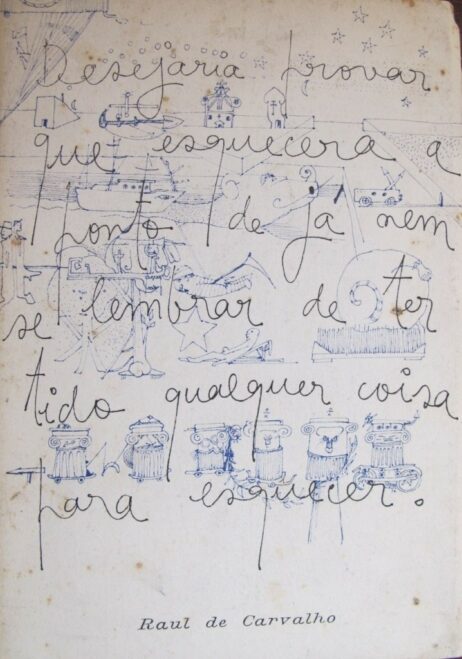 Desejaria provar
que esquecera a
ponto de já nem
se lembrar de ter
tido qualquer coisa
para esquecer.
Raul de Carvalho